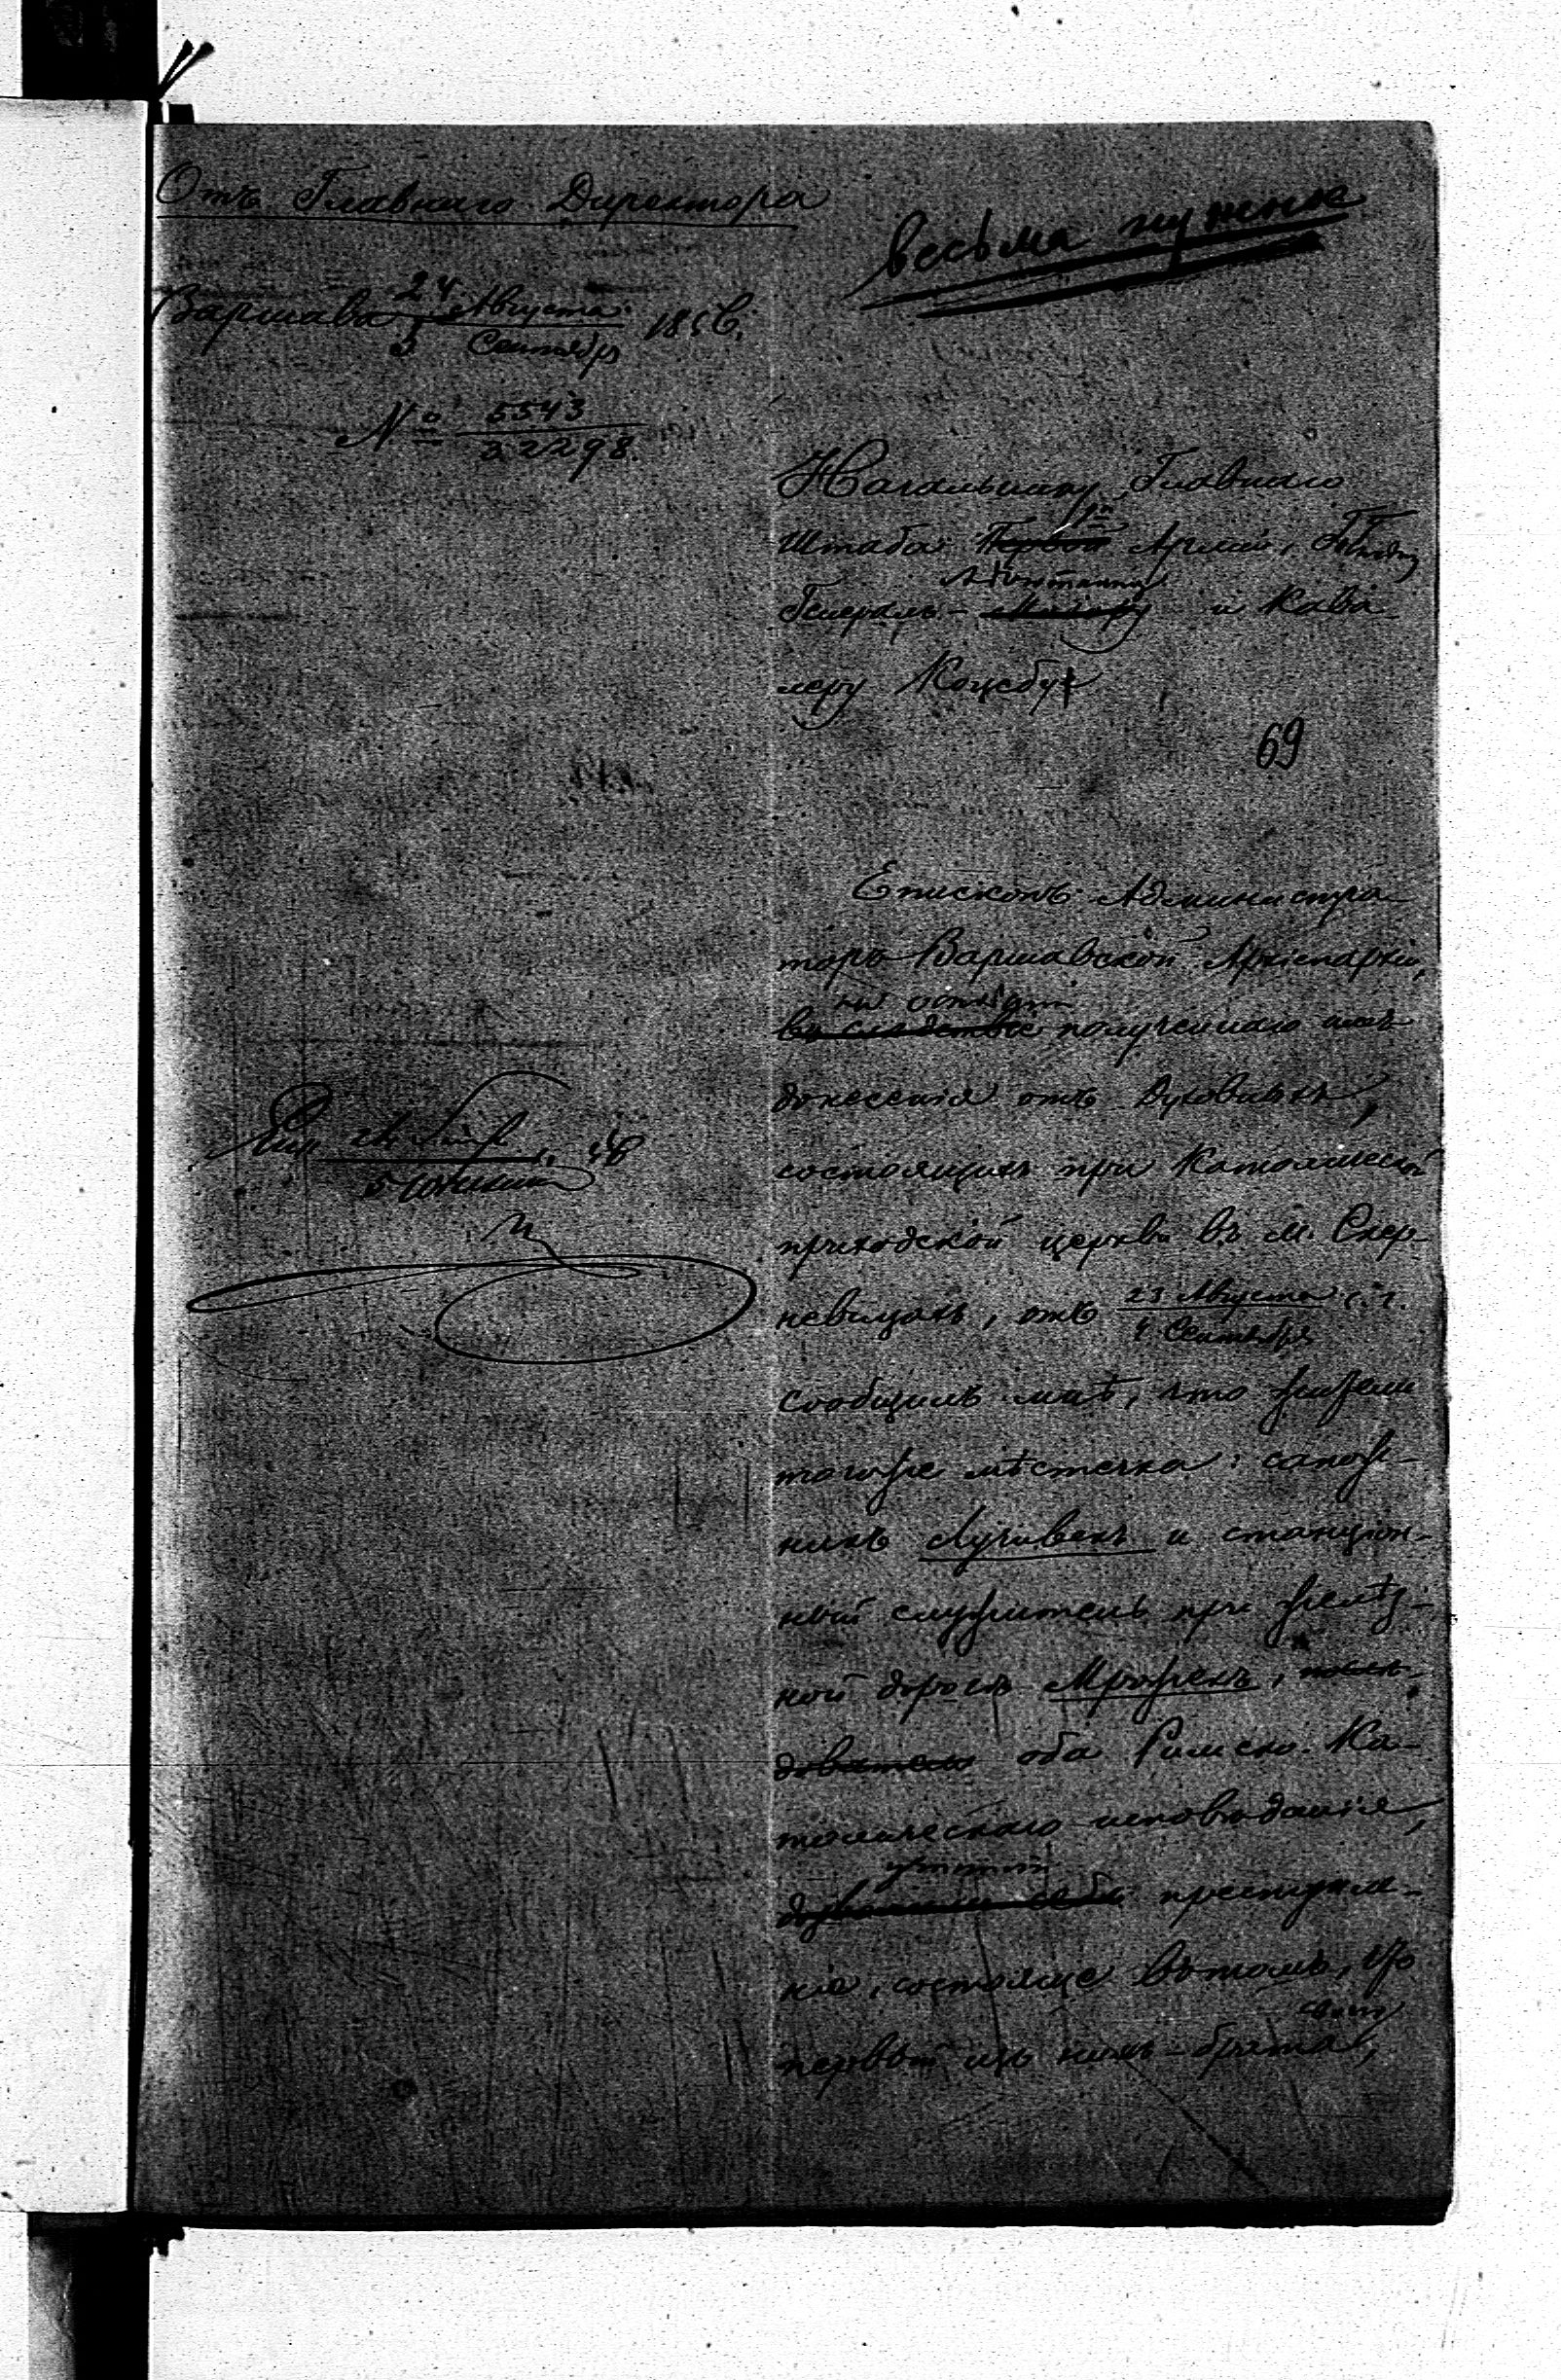 Отъ Главнаго Директора
весьма нужное
Варшава 24 Августа
5 Сентября
№ 5543
22298.
Начальнику Главнаго
Штаба Первой Арміи, Господину
Адъютанту
Генералъ-Маіору и Кава-
леру Коцебу
69
Епископъ Администра-
торъ Варшавской Архіепархіи,
въ слѣдствіе полученнаго имъ
донесенія отъ Духовныхъ,
состоящихъ при Католической
приходской церкви въ м. Скер-
невицахъ, отъ 23 Августа с. г.
4 Сентября
сообщилъ мнѣ, что жители
тогоже мѣстечка: сапож-
никъ Лучивекъ и станціон-
ный служитель при желѣз-
ной дорогѣ Мрожекъ,
оба Римско-Ка-
толическаго исповѣданія,
дозволили себѣ преступле-
ніе, состоящее въ томъ, что
первый изъ нихъ брата,